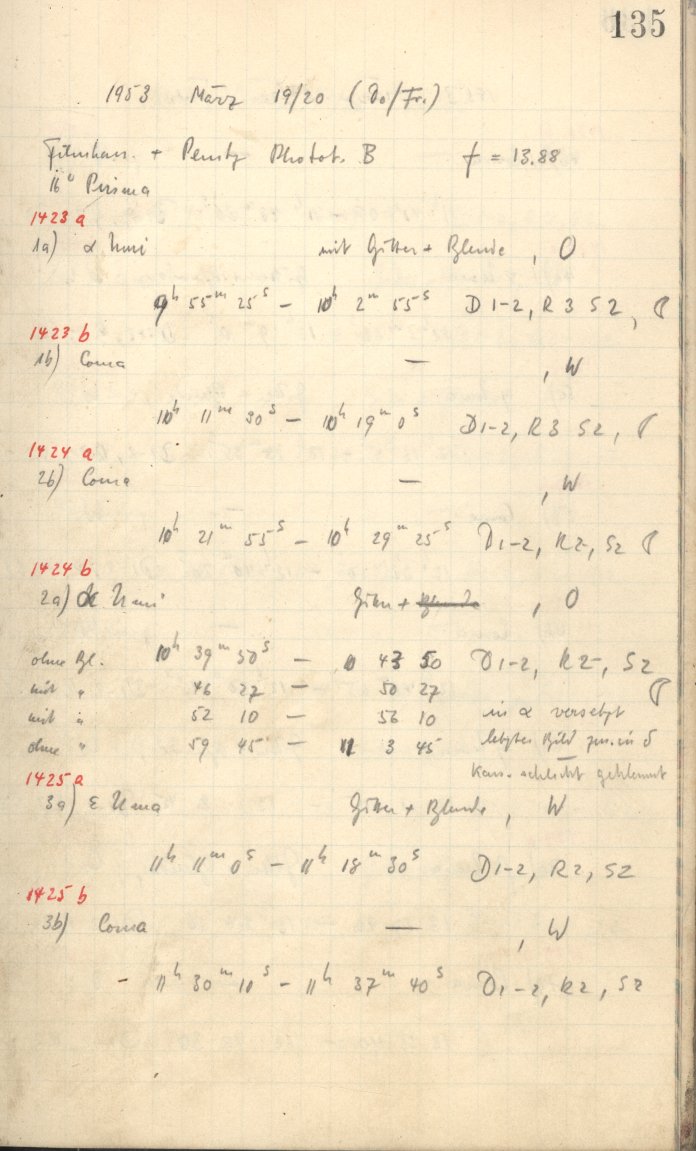 135
1953 März 19/20 (Do/Fr.)
+ Photot. B f = 13.88
Prisma
1423 a
1a) α Umi mit Gitter + Blende , O
9h 55m 25s – 10h 2m 55s D 1-2, R 3 S2,
1423 b
1b) Coma — , W
10h 11m 30s – 10h 19m 0s D1-2, R3 S2,
1424 a
2b) Coma — , W
10h 21m 55s – 10h 29m 25s D1-2, R2, S2
1424 b
2a) α Umi Gitter + Blende , O
ohne Bl. 10h 39m 50s – 10 43 50 D1-2, R2, S2
mit " 46 27 – 50 27
mit " 52 10 – 56 10 in α versetzt
ohne " 59 45 – 11 3 45 letztes Bild in δ
Kass. schlecht geklemmt
1425 a
3a) ε Uma Gitter + Blende , W
11h 11m 0s – 11h 18m 30s D1-2, R2, S2
1425 b
3b) Coma — , W
- 11h 30m 10s – 11h 37m 40s D1-2, R2, S2